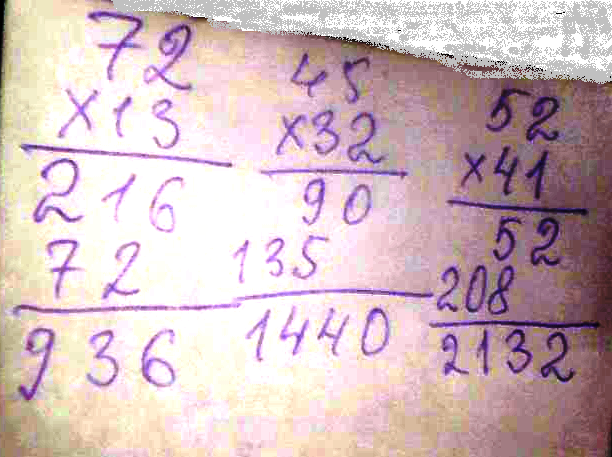 72
×13
216
72
936
45
×32
90
135
1440
52
×41
52
208
2132